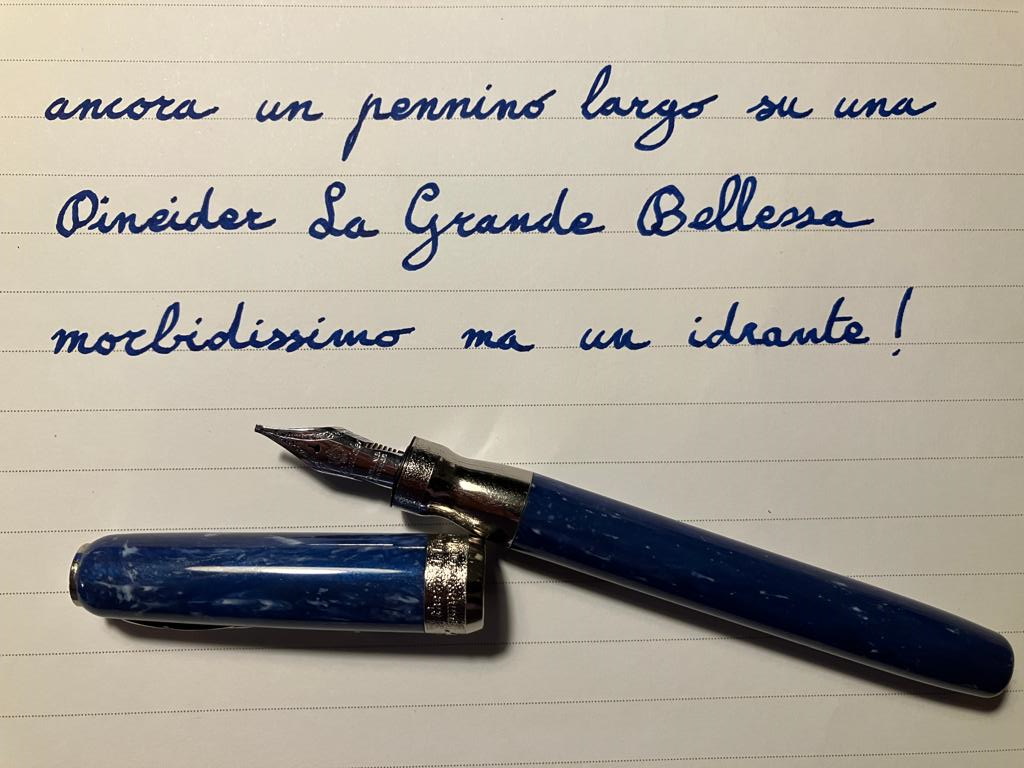 ancora un pennino largo su una
Pineider La Grande Bellezza
morbidissimo ma un idrante!